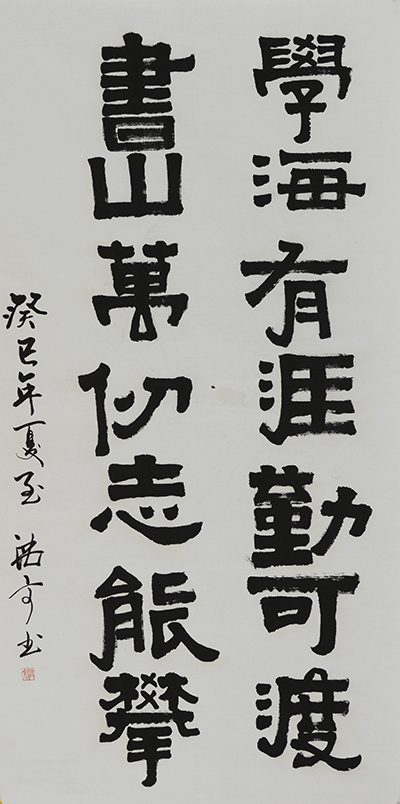 學海有涯勤可渡
書山萬仞志能攀
癸巳年夏至
書